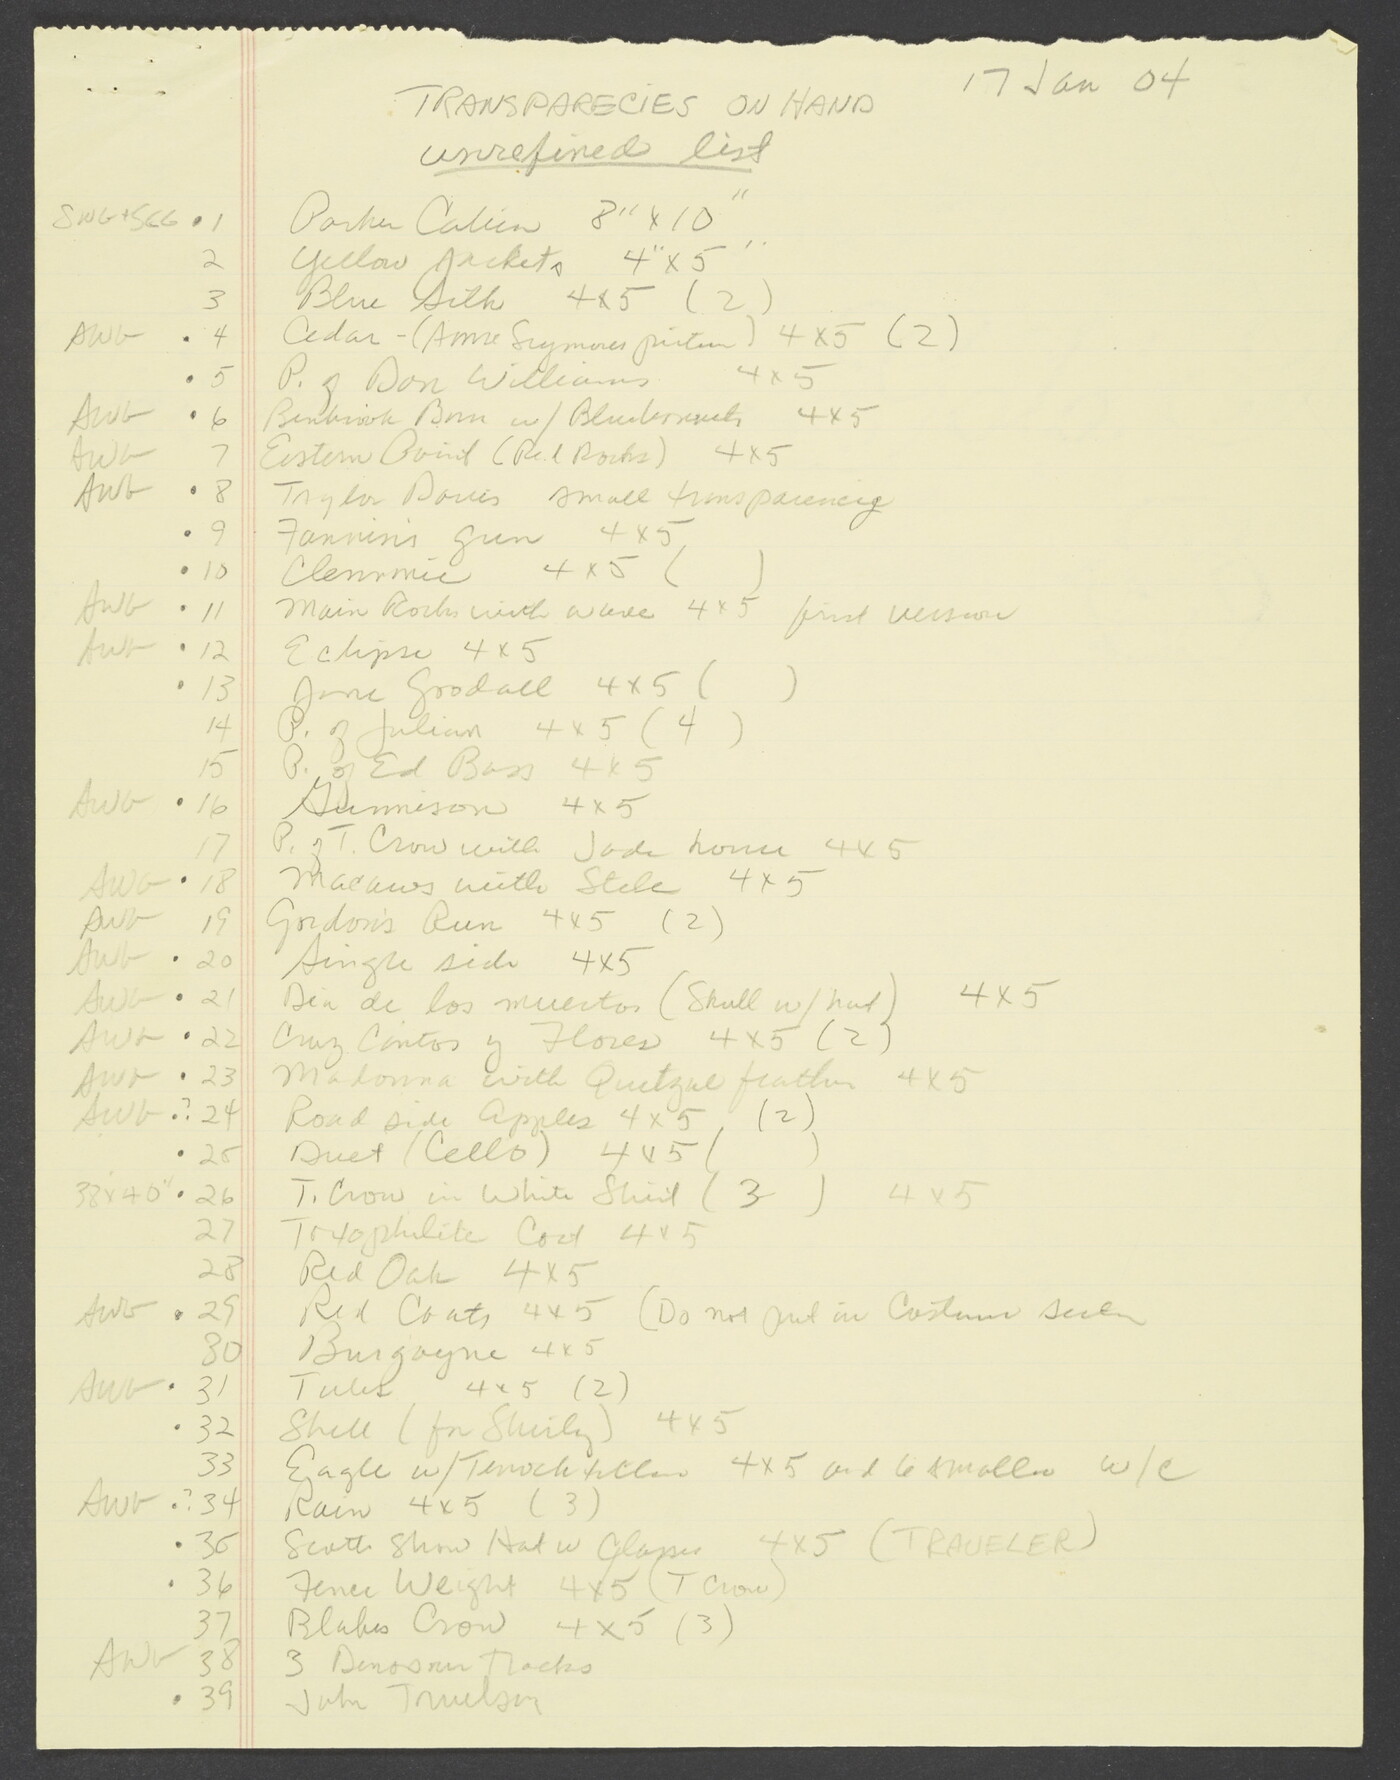 17 Jan 04
TRANSPARECIES ON HAND
unrefined list
• 1 Parker Cabin 8" x 10"
2 Yellow Jackets 4" x 5"
3 Blue Silk 4x5 (2)
AWG • 4 Cedar - (Anne Seymours picture) 4x5 (2)
• 5 P. of Don Williams 4x5
AWG • 6 Benbrook Barn w/ Bluebonnets 4x5
AWG 7 Eastern Point (Red Rocks) 4x5
AWG • 8 Davis small transparency
• 9 Fannin's gun 4x5
• 10 Clemmie 4x5 ( )
AWG • 11 Main Rocks with wave 4x5 first version
AWG • 12 Eclipse 4x5
• 13 Jane Goodall 4x5 ( )
14 P. of Julian 4x5 (4)
15 P. of Ed Bass 4x5
AWG • 16 Gunnison 4x5
17 P. of T. Crow with Jade 4x5
AWG • 18 Macaws with Stele 4x5
AWG 19 Gordon's Run 4x5 (2)
AWG • 20 Single side 4x5
AWG • 21 Dia de los muertos (Skull w/ hat) 4x5
AWG • 22 Cruz Cantos y Flores 4x5 (2)
AWG • 23 Madonna with Quetzal feather 4x5
AWG •? 24 Road side Apples 4x5 (2)
• 25 Duet (Cello) 4x5 ( )
38x40" • 26 T. Crow in White Shirt (3) 4x5
27 Toxophilite Coat 4x5
28 Red Oak 4x5
AWG • 29 Red Coats 4x5 (Do not put in Costume
30 Burgoyne 4x5
AWG • 31 Tules 4x5 (2)
• 32 Shell (for Shirly) 4x5
33 Eagle w/ 4x5 and 6 smaller w/c
AWG •? 34 Rain 4x5 (3)
• 35 Scotts Straw Hat w Glasses 4x5 (TRAVELER)
• 36 Fence Weight 4x5 (T Crow)
37 Blakes Crow 4x5 (3)
AWG 38 3 Dinosaur Tracks
• 39 John Truelson